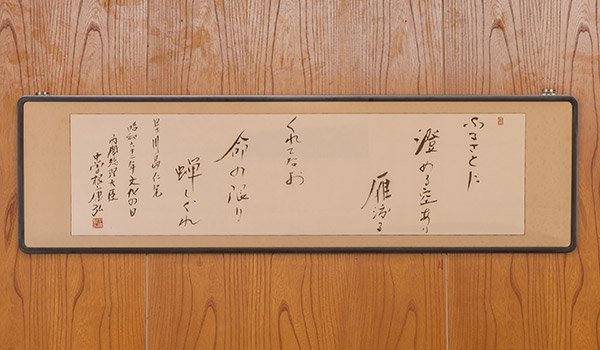 ふるさとに
澄める空あり
雁渡る
くれてなお
命の限り
蝉しぐれ
仁兄
昭和六十二年文化の日
内閣総理大臣
中曽根康弘